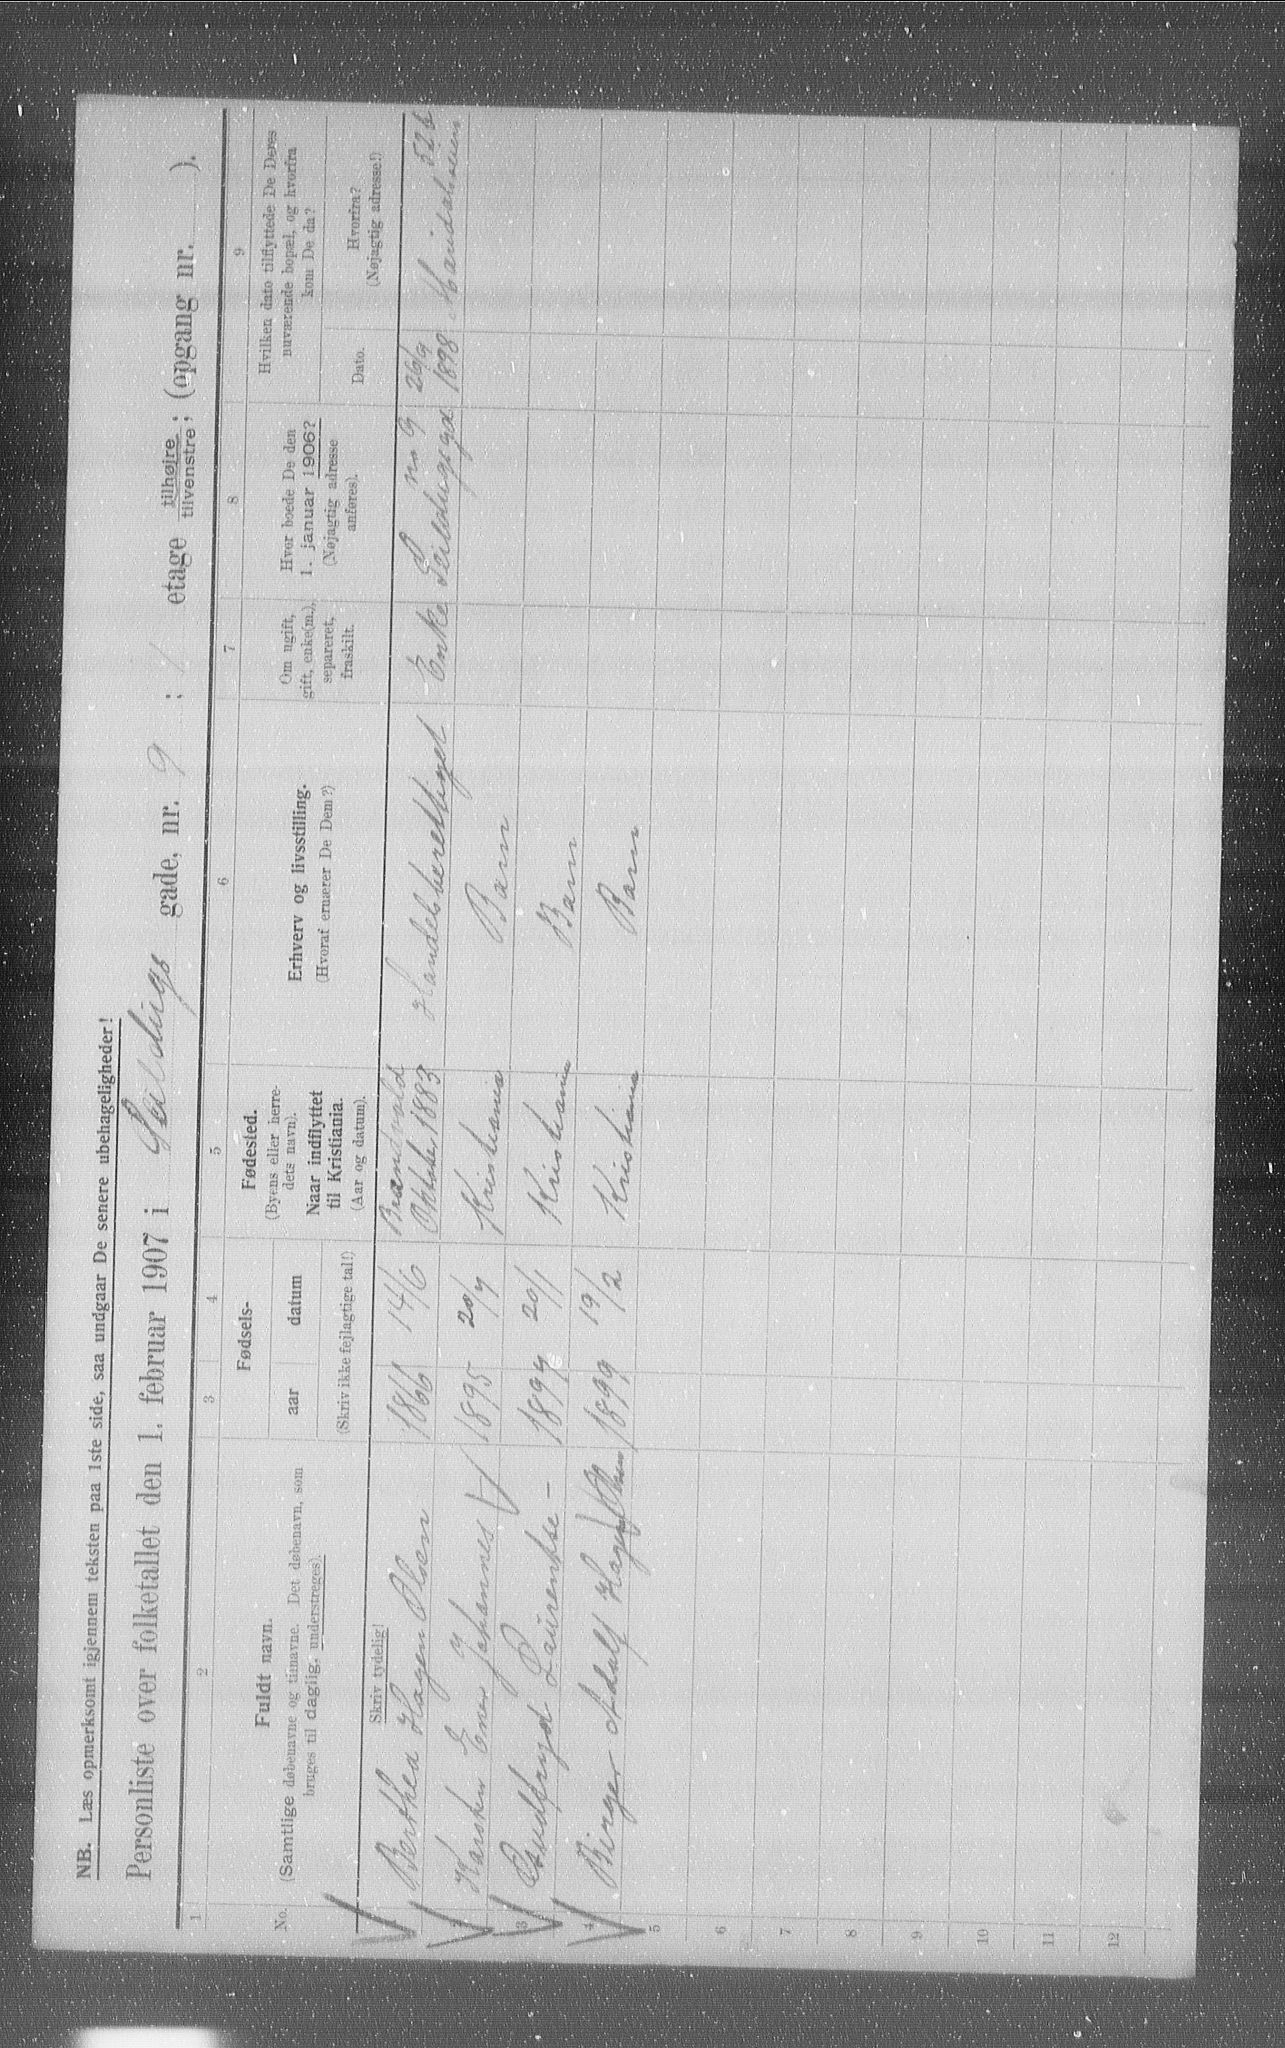 NB. Læs opmerksomt igjennem teksten paa 1ste side, saa undgaar De senere ubehageligheder!
Personliste over folketallet den 1. februar 1907 i Seildugs gade, nr. 9 ; 1 etage tilhøjre tilvenstre; (opgang nr. ).
1 2 3 4 5 6 7 8 9
No.
Fuldt navn.
(Samtlige døbenavne og tilnavne. Det døbenavn, som
bruges til daglig, understreges).
Skriv tydelig!
Fødsels-
aar datum
(Skriv ikke fejlagtige tal!)
Fødested.
(Byens eller herre-
dets navn).
Naar indflyttet
til Kristiania.
(Aar og datum).
Erhverv og livsstilling.
(Hvoraf ernærer De Dem?)
Om ugift,
gift, enke(m.),
separeret,
fraskilt.
Hvor boede De den
1. januar 1906?
(Nøjagtig adresse
anføres).
Hvilken dato tilflyttede De Deres
nuværende bopæl, og hvorfra
kom De da?
Dato.
Hvorfra?
(Nøjagtig adresse!)
Berthea Hagen Olsen 1866 14/6 Brandvold Oktober 1883 Handelsberettiget Enke Seildugsgd no 9 26/9 1898 52b
2 Karsten Johannes 1895 20/7 Kristiania Barn
3 Laurentse - 1897 20/1 Kristiania Barn
4 Birger Adolf Hagen Olsen 1899 19/2 Kristiania Barn
5
6
7
8
9
10
11
12